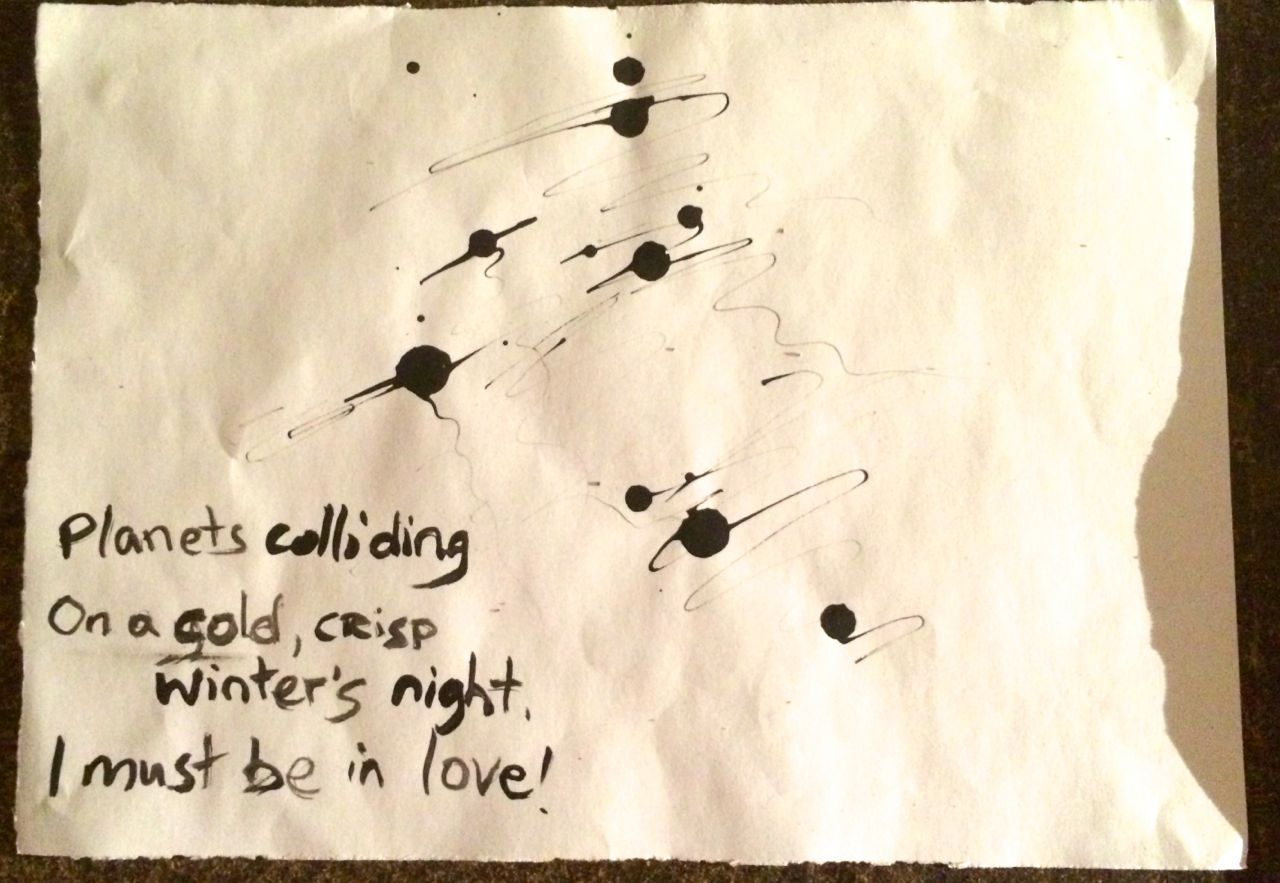 Planets colliding
On a cold, crisp
winter's night.
I must be in love!